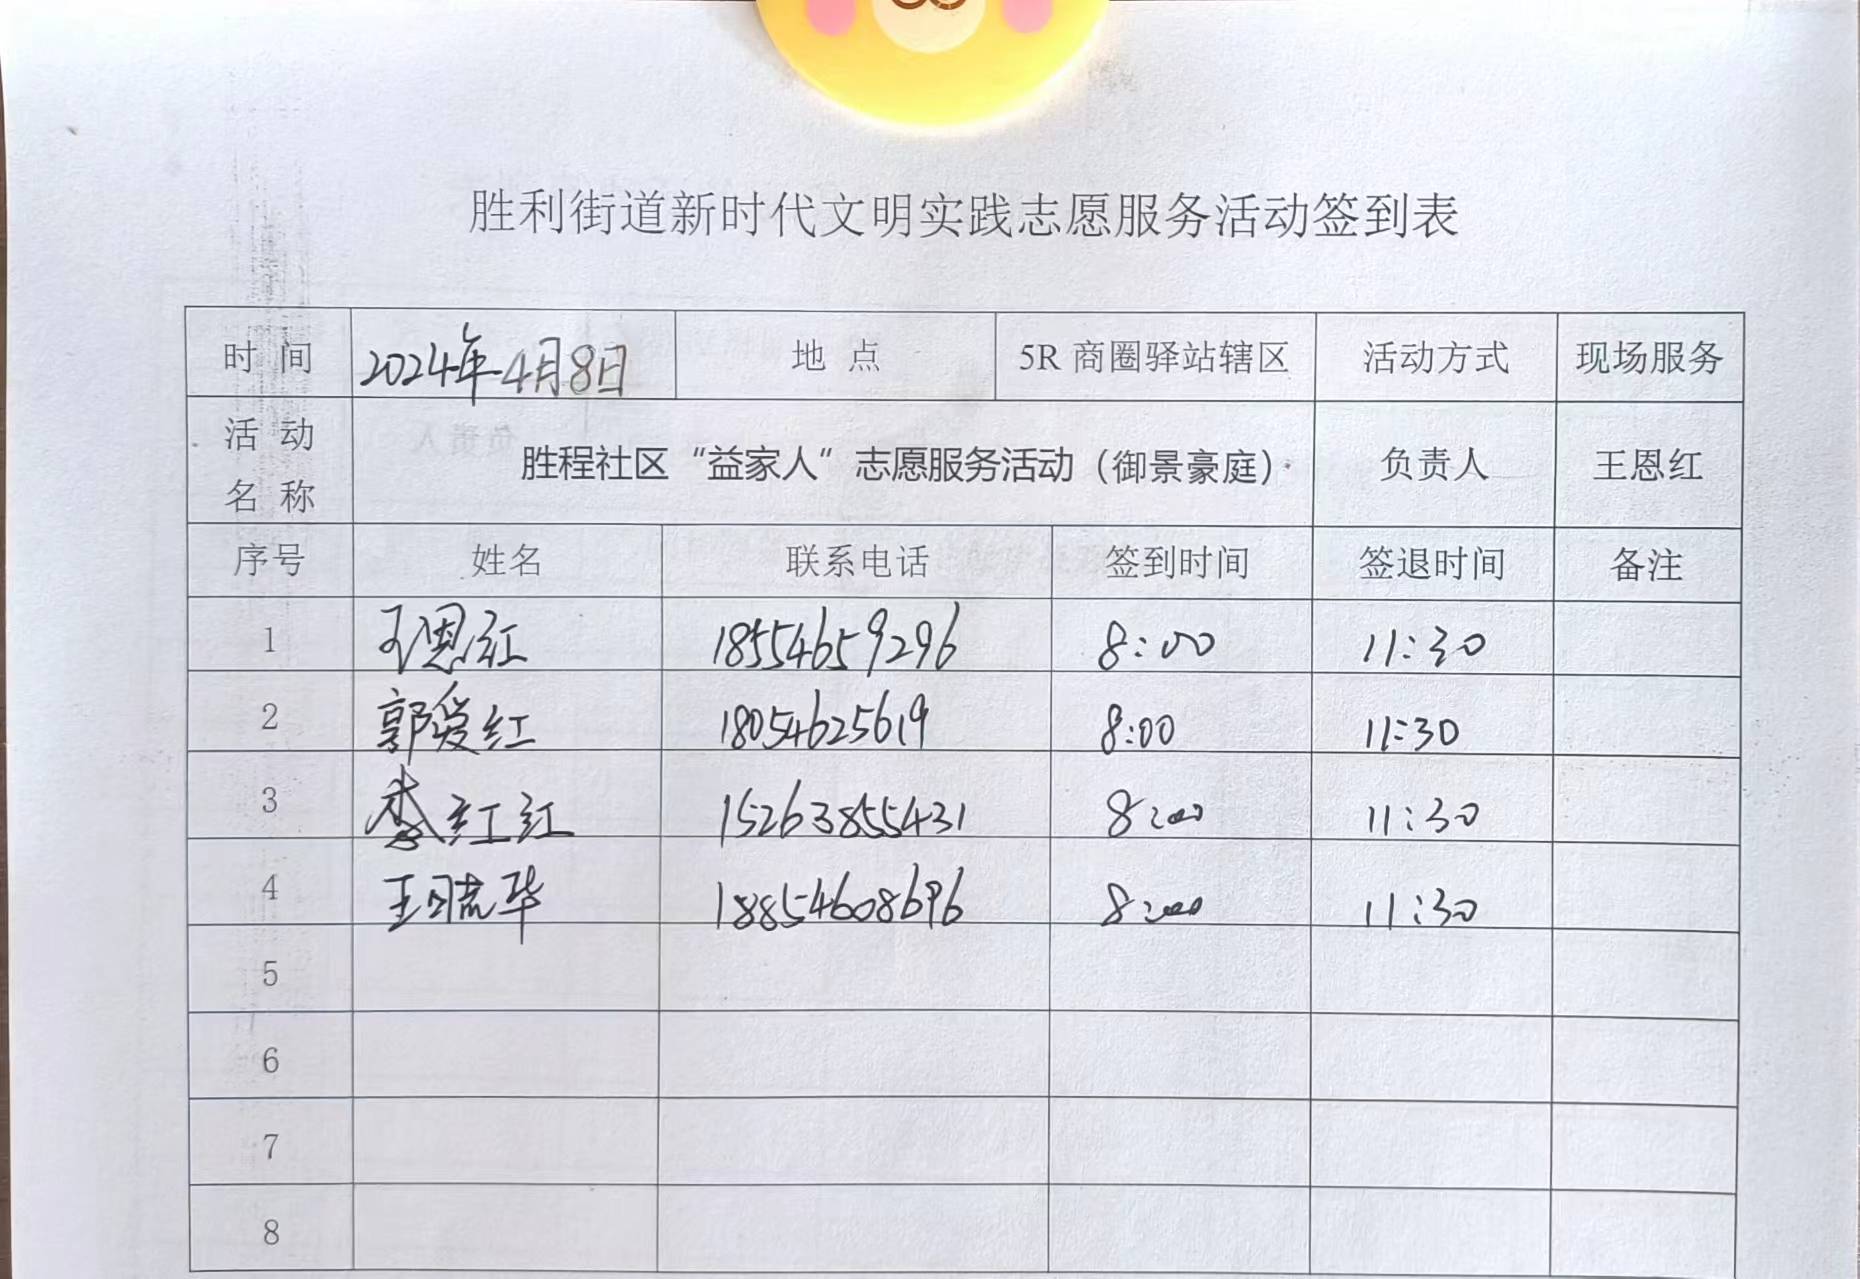 胜利街道新时代文明实践志愿服务活动签到表
时 间 2024年4月8日 地 点 5R 商圈驿站辖区 活动方式 现场服务
活 动
名 称 胜程社区“益家人”志愿服务活动（御景豪庭） 负责人 王恩红
序号 姓名 联系电话 签到时间 签退时间 备注
1 王恩红 18554659296 8:00 11:30
2 郭爱红 18054625619 8:00 11:30
3 李红红 15263855431 8:00 11:30
4 王晓华 18854608696 8:00 11:30
5
6
7
8